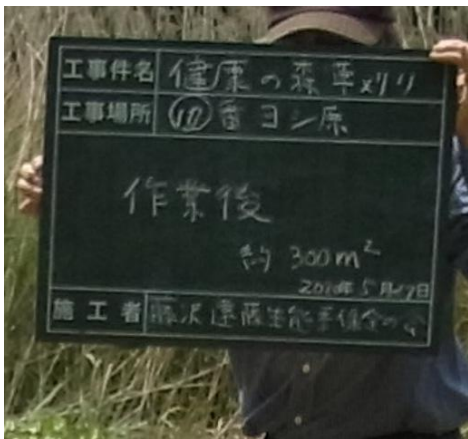 工事件名 健康の森草刈り
工事場所 番ヨシ原
作業後
約 300m²
5月 日
施工者 藤沢遠藤生態系保全の会